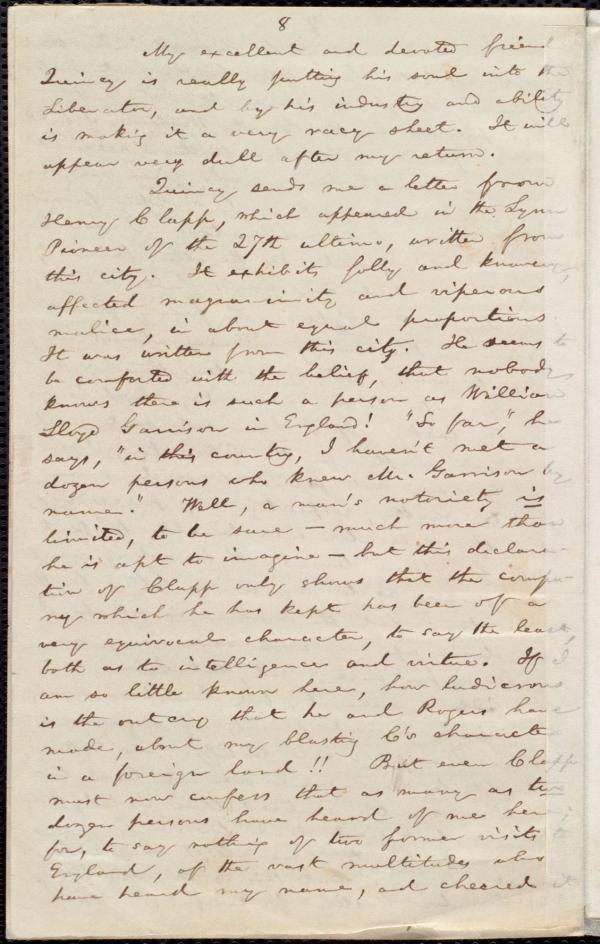 8
My excellent and devoted friend
Quincy is really putting his soul into the
Liberator, and by his industry and ability
is making it a very racy sheet. It will
appear very dull after my return.
Quincy sends me a letter from
Henry Clapp, which appeared in the Lynn
Pioneer of the 27th ultimo, written from
this city. It exhibits folly and knavery,
affected magnanimity and viperous
malice, in about equal proportions.
It was written from this city. He seems to
be comforted with the belief, that nobody
knows there is such a person as William
Lloyd Garrison in England! "So far," he
says, "in this country, I haven't met a
dozen persons who knew Mr. Garrison by
name." Well, a man's notoriety is
limited, to be sure — much more than
he is apt to imagine — but this declara-
tion of Clapp only shows that the compa-
ny which he has kept has been of a
very equivocal character, to say the least,
both as to intelligence and virtue. If I
am so little known here, how ludicrous
is the outcry that he and Rogers have
made, about my blasting C's character
in a foreign land!! But even Clapp
must now confess that as many as two
dozen persons have heard of me here;
for, to say nothing of two former visits to
England, of the vast multitudes who
have heard my name, and cheered it